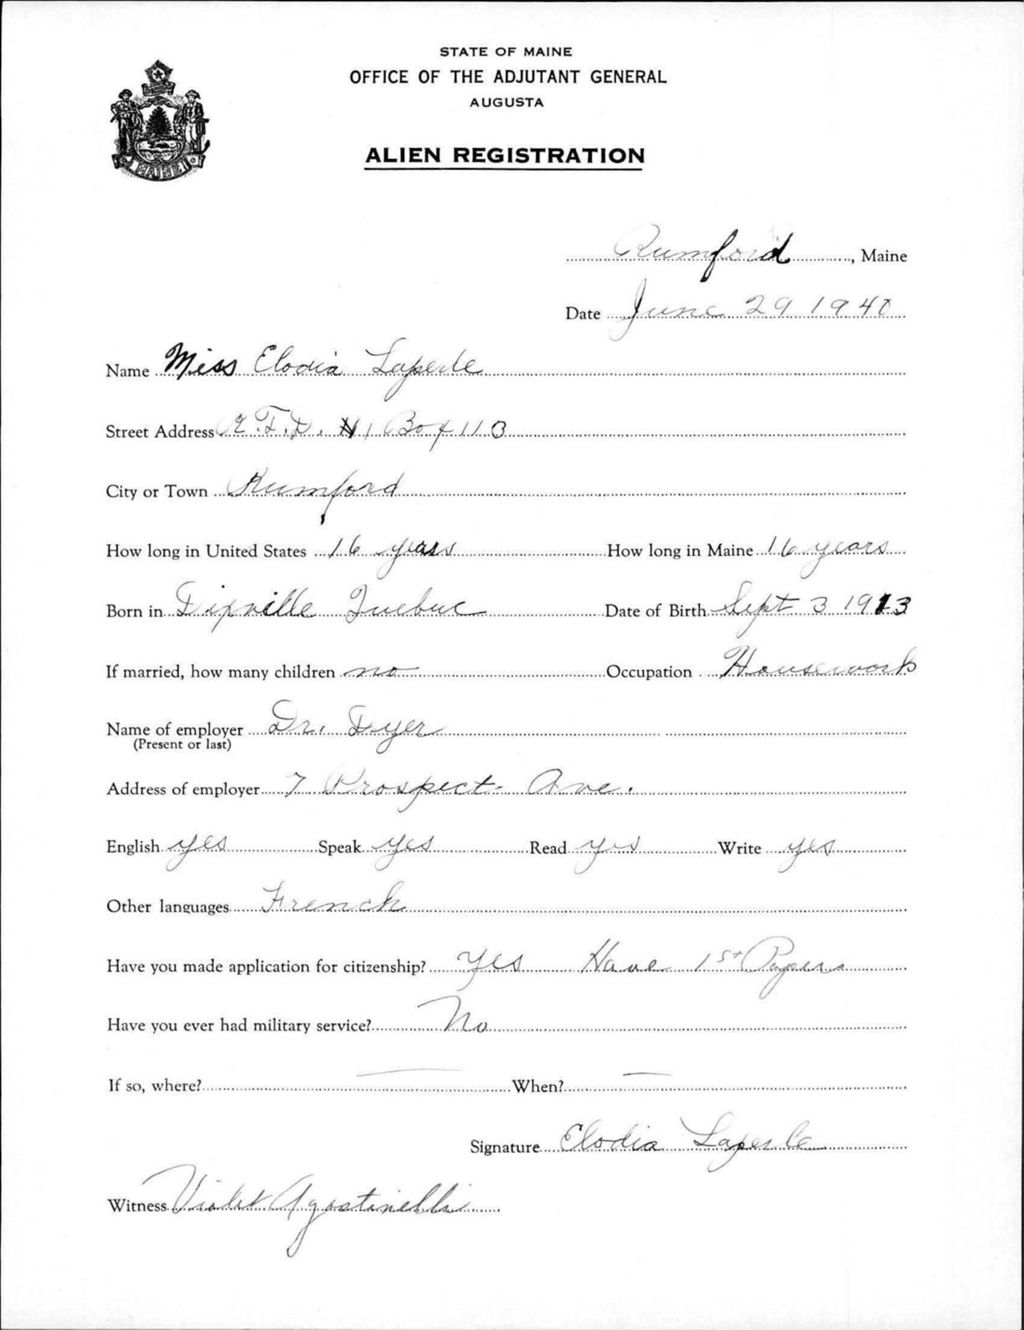 STATE OF MAINE
OFFICE OF THE ADJUTANT GENERAL
AUGUSTA
ALIEN REGISTRATION
MAINE
Rumford, Maine
Date June 29 1940
Name Miss Elodia Laperle
Street Address R.F.D. #1 Box 113
City or Town Rumford
How long in United States 16 years How long in Maine 16 years
Born in Dixville Quebec Date of Birth Sept 3 1913
If married, how many children no Occupation Housework
Name of employer Dr. Dyer
(Present or last)
Address of employer 7 Prospect Ave.
English yes Speak yes Read yes Write yes
Other languages French
Have you made application for citizenship? Yes Have 1st Papers
Have you ever had military service? No
If so, where? — When? —
Signature Elodia Laperle
Witness Violet Agostinelli